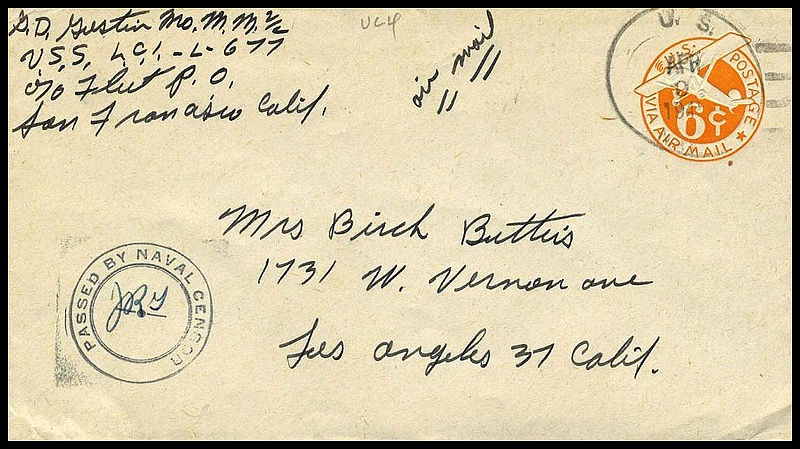 G.D. Gustin Mo.M.M. 2/c
U.S.S. L.C.I. -L- 677
c/o Fleet P.O.
San Francisco Calif.
UC4
air mail
U. S.
APR
U.S. POSTAGE
6¢
VIA AIR MAIL
Mrs Birch Butters
1731 W. Vernon ave
Los angeles 37 Calif.
PASSED BY NAVAL CENSOR